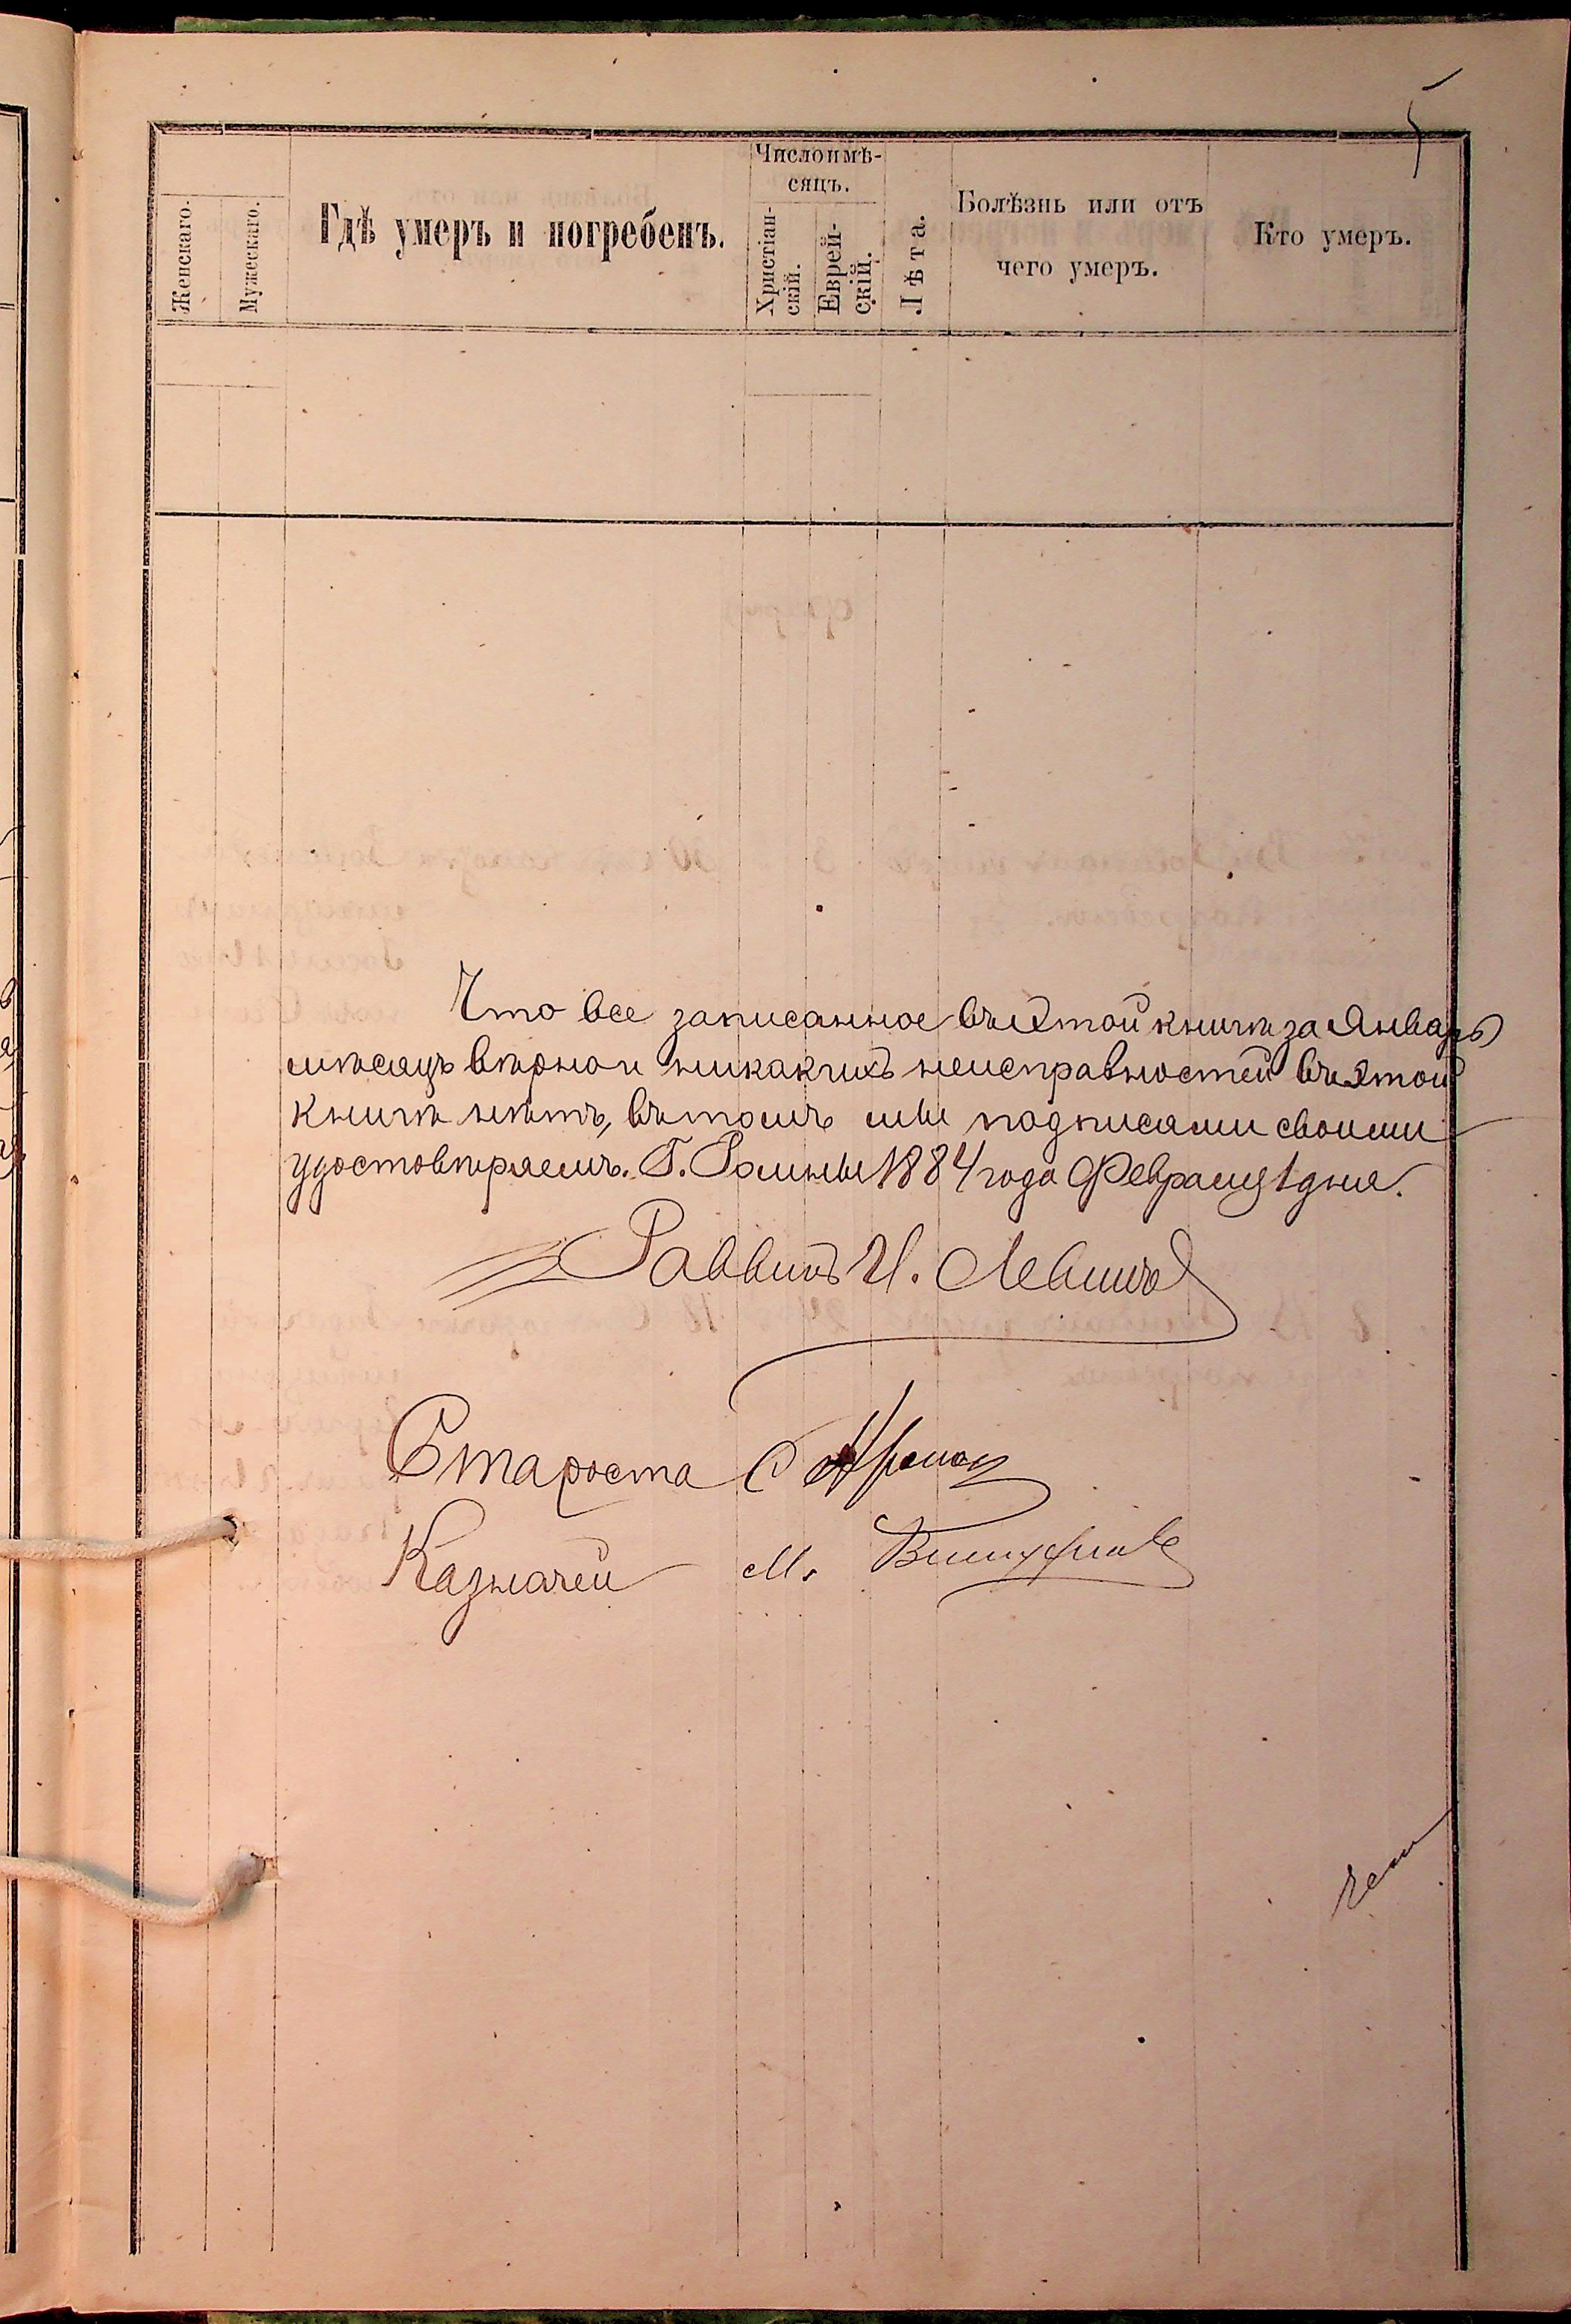 5
Числоимѣ-
сяцъ.
Женскаго.
Мужескаго.
Гдѣ умеръ и погребенъ.
Христіан-
скій.
Еврей-
скій.
Лѣта.
Болѣзнь или отъ
чего умеръ.
Кто умеръ.
Что все записанное въ этой книгѣ за Январь
мѣсяцъ вѣрно и никакихъ неисправностей въ этой
книгѣ нѣтъ, въ томъ мы подписами своими
удостовѣряемъ. Г. Ромны 1884 года Февраля 1 дня.
Раввинъ И. Левинъ
Староста
Казначей М.